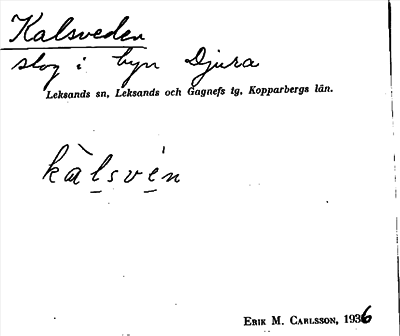 Kalsveden
skog i byn Djura
Leksands sn, Leksands och Gagnefs tg, Kopparbergs län.
kàlsvén
ERIK M. CARLSSON, 1936